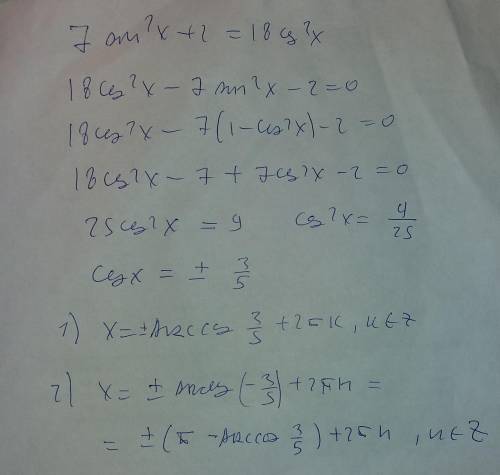 7 sin²x + 2 = 18cos²x
18cos²x - 7 sin²x - 2 = 0
18cos²x - 7(1 - cos²x) - 2 = 0
18cos²x - 7 + 7cos²x - 2 = 0
25cos²x = 9 cos²x = 9/25
cosx = ± 3/5
1) x = ± arccos 3/5 + 2πk, k∈Z
2) x = ± arccos(-3/5) + 2πn =
= ±(π - arccos 3/5) + 2πn, n∈Z